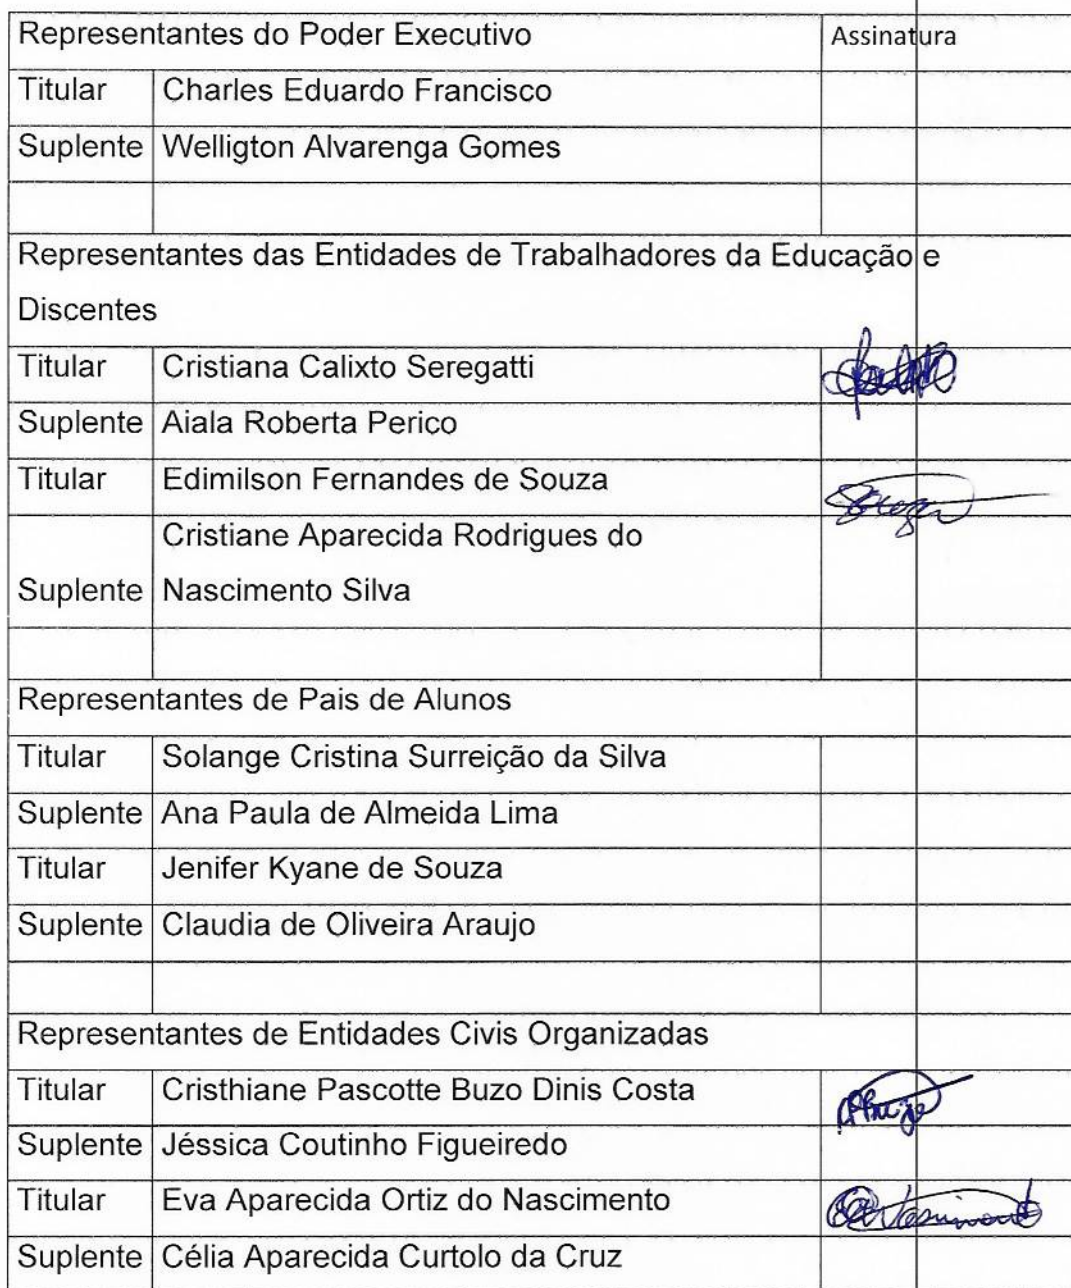 Representantes do Poder Executivo Assinatura
Titular Charles Eduardo Francisco
Suplente Welligton Alvarenga Gomes
Representantes das Entidades de Trabalhadores da Educação e
Discentes
Titular Cristiana Calixto Seregatti
Suplente Aiala Roberta Perico
Titular Edimilson Fernandes de Souza
Cristiane Aparecida Rodrigues do
Suplente Nascimento Silva
Representantes de Pais de Alunos
Titular Solange Cristina Surreição da Silva
Suplente Ana Paula de Almeida Lima
Titular Jenifer Kyane de Souza
Suplente Claudia de Oliveira Araujo
Representantes de Entidades Civis Organizadas
Titular Cristhiane Pascotte Buzo Dinis Costa
Suplente Jéssica Coutinho Figueiredo
Titular Eva Aparecida Ortiz do Nascimento
Suplente Célia Aparecida Curtolo da Cruz